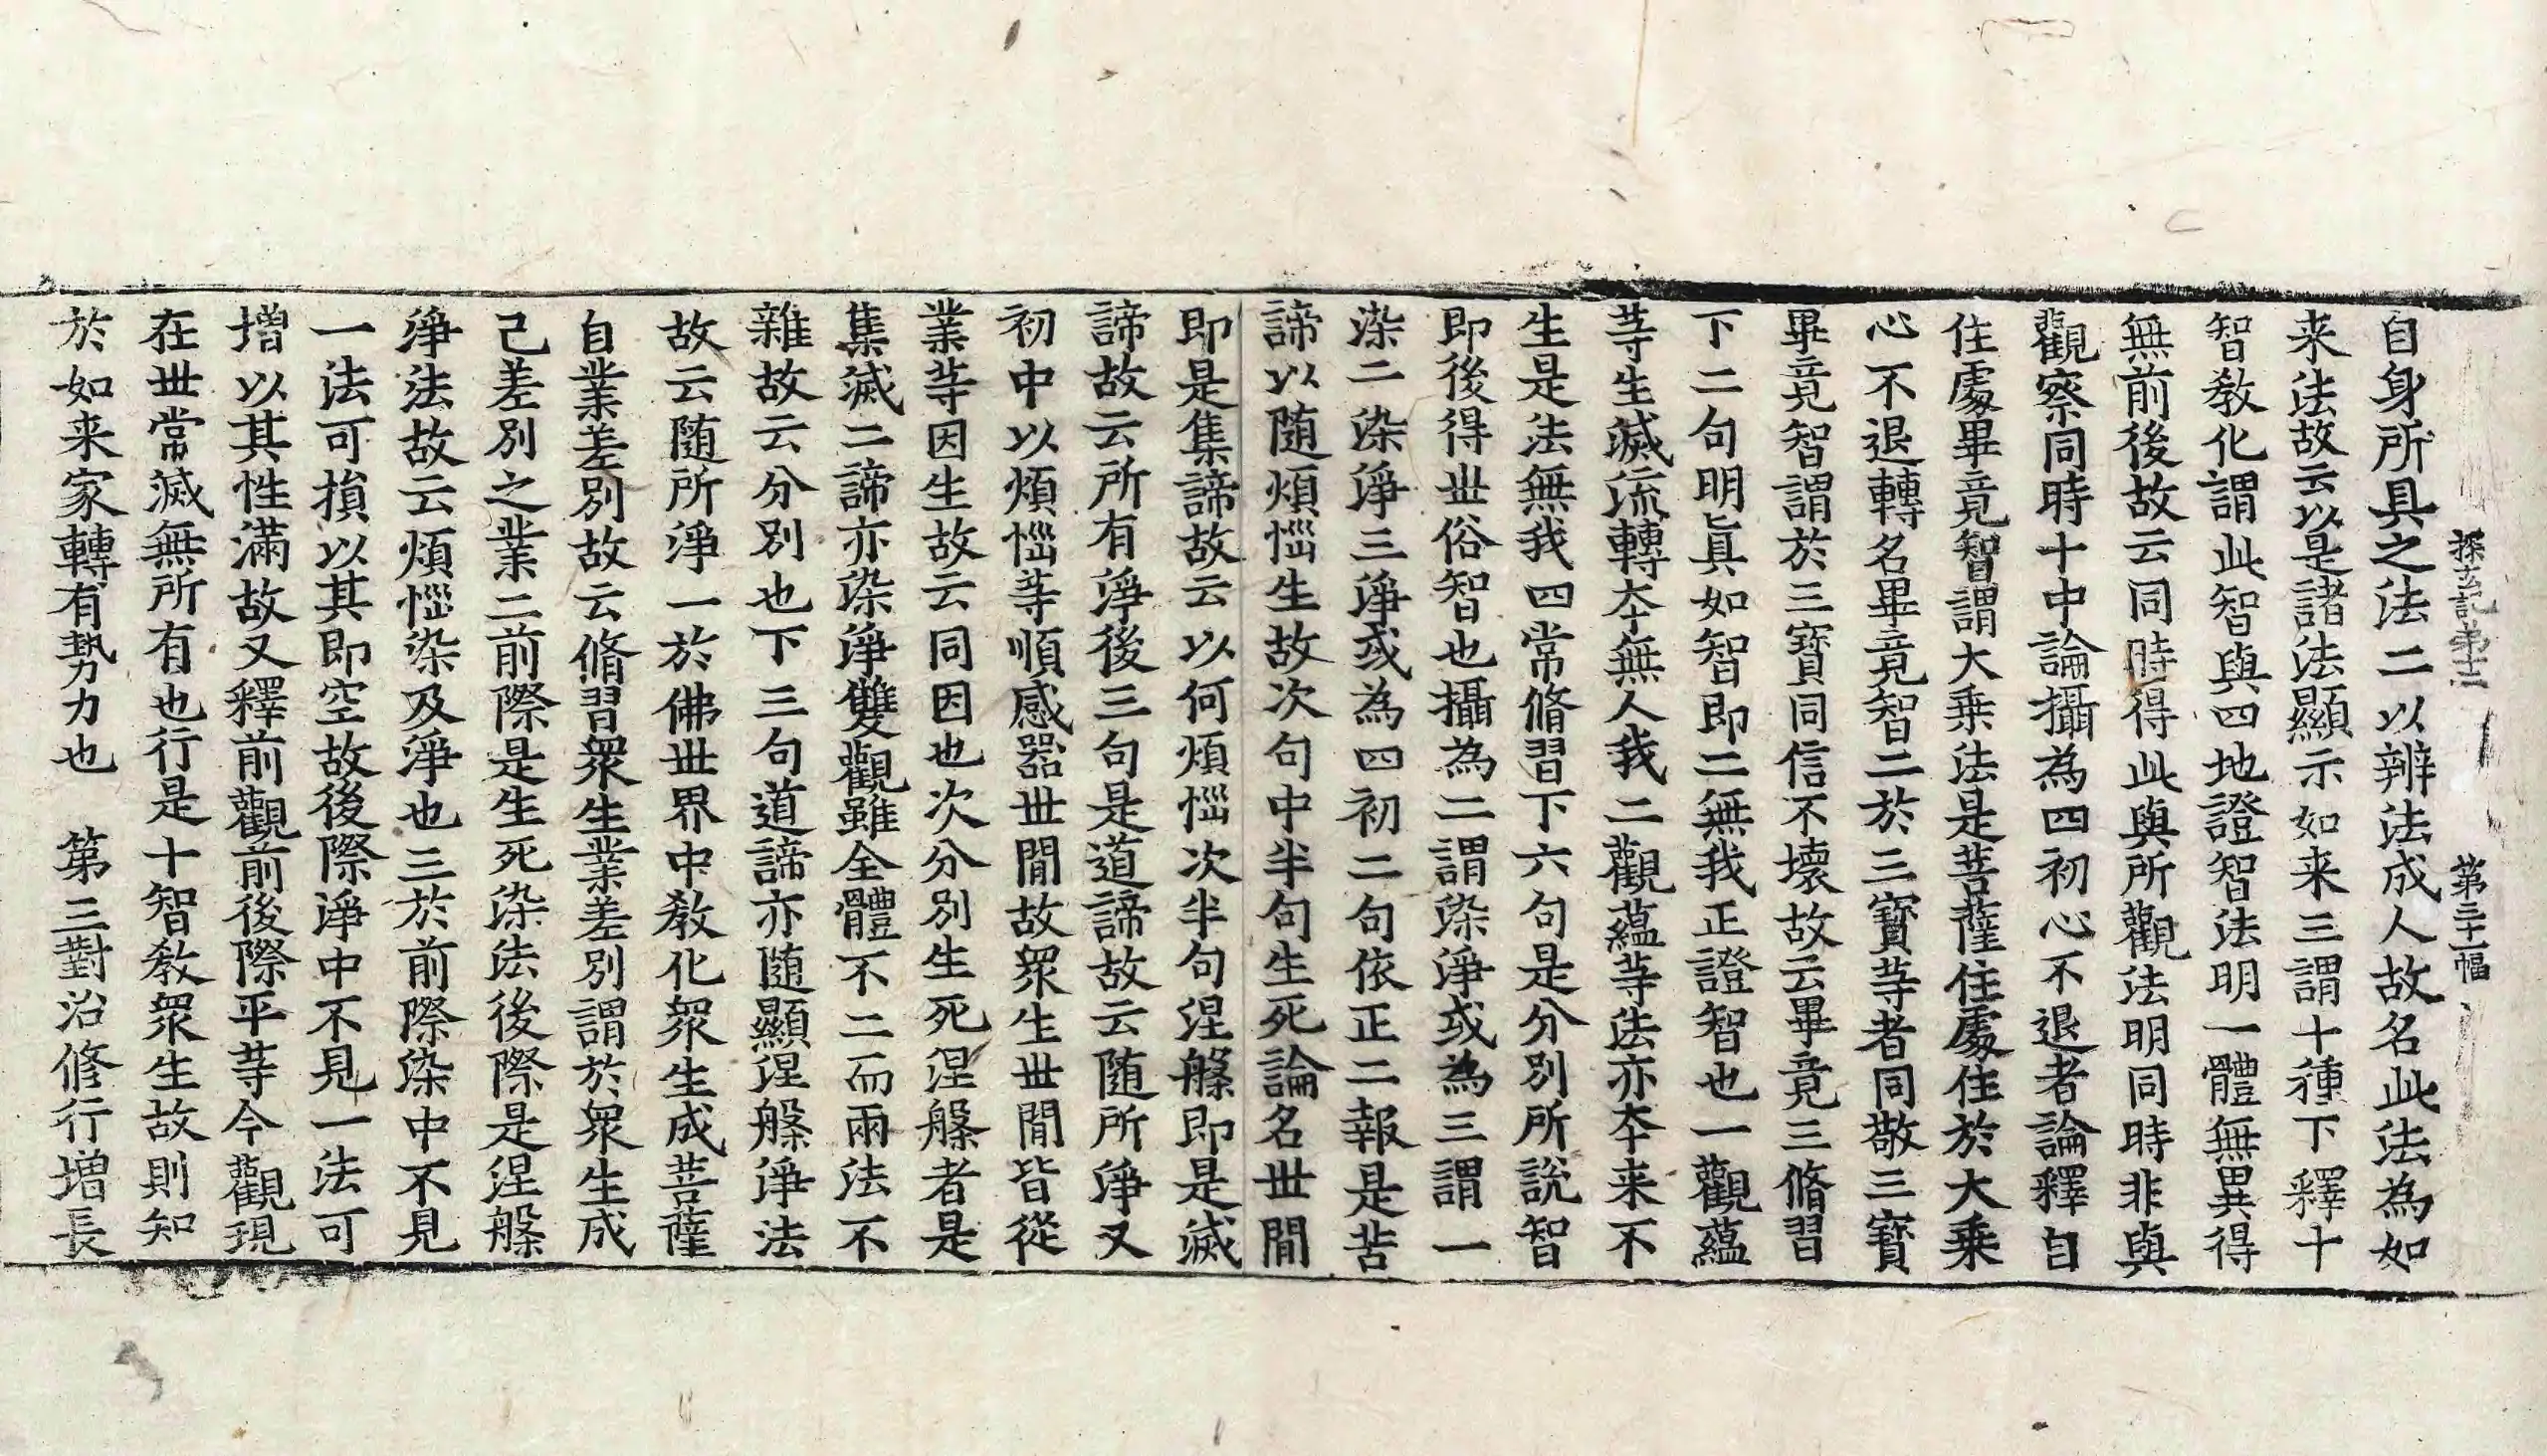 探玄記第十二　第三十一幅
自身所具之法二以辨法成人故名此法為如
来法故云以是諸法顯示如来三謂十種下釋十
智教化謂此智與四地證智法明一體無異得
無前後故云同時得此與所觀法明同時非與
觀察同時十中論攝為四初心不退者論釋自
住處畢竟智謂大乗法是菩薩住處住於大乗
心不退轉名畢竟智二於三寳等者同敬三寳
畢竟智謂於三寳同信不壞故云畢竟三脩習
下二句明眞如智即二無我正證智也一觀蘊
等生滅流轉本無人我二觀蘊等法亦本来不
生是法無我四常脩習下六句是分別所說智
即後得世俗智也攝為二謂染淨或為三謂一
染二染淨三淨或為四初二句依正二報是苦
諦以随煩惱生故次句中半句生死論名世間
即是集諦故云以何煩惱次半句涅槃即是滅
諦故云所有淨後三句是道諦故云随所淨又
初中以煩惱等順感器世間故衆生世間皆從
業等因生故云同因也次分別生死涅槃者是
集滅二諦亦染淨雙觀雖全體不二而兩法不
雜故云分別也下三句道諦亦随顯涅槃淨法
故云随所淨一於佛世界中教化衆生成菩薩
自業差別故云脩習衆生業差別謂於衆生成
己差別之業二前際是生死染法後際是涅槃
淨法故云煩惱染及淨也三於前際染中不見
一法可損以其即空故後際淨中不見一法可
増以其性滿故又釋前觀前後際平等今觀現
在世常滅無所有也行是十智教衆生故則知
於如来家轉有勢力也　第三對治修行増長